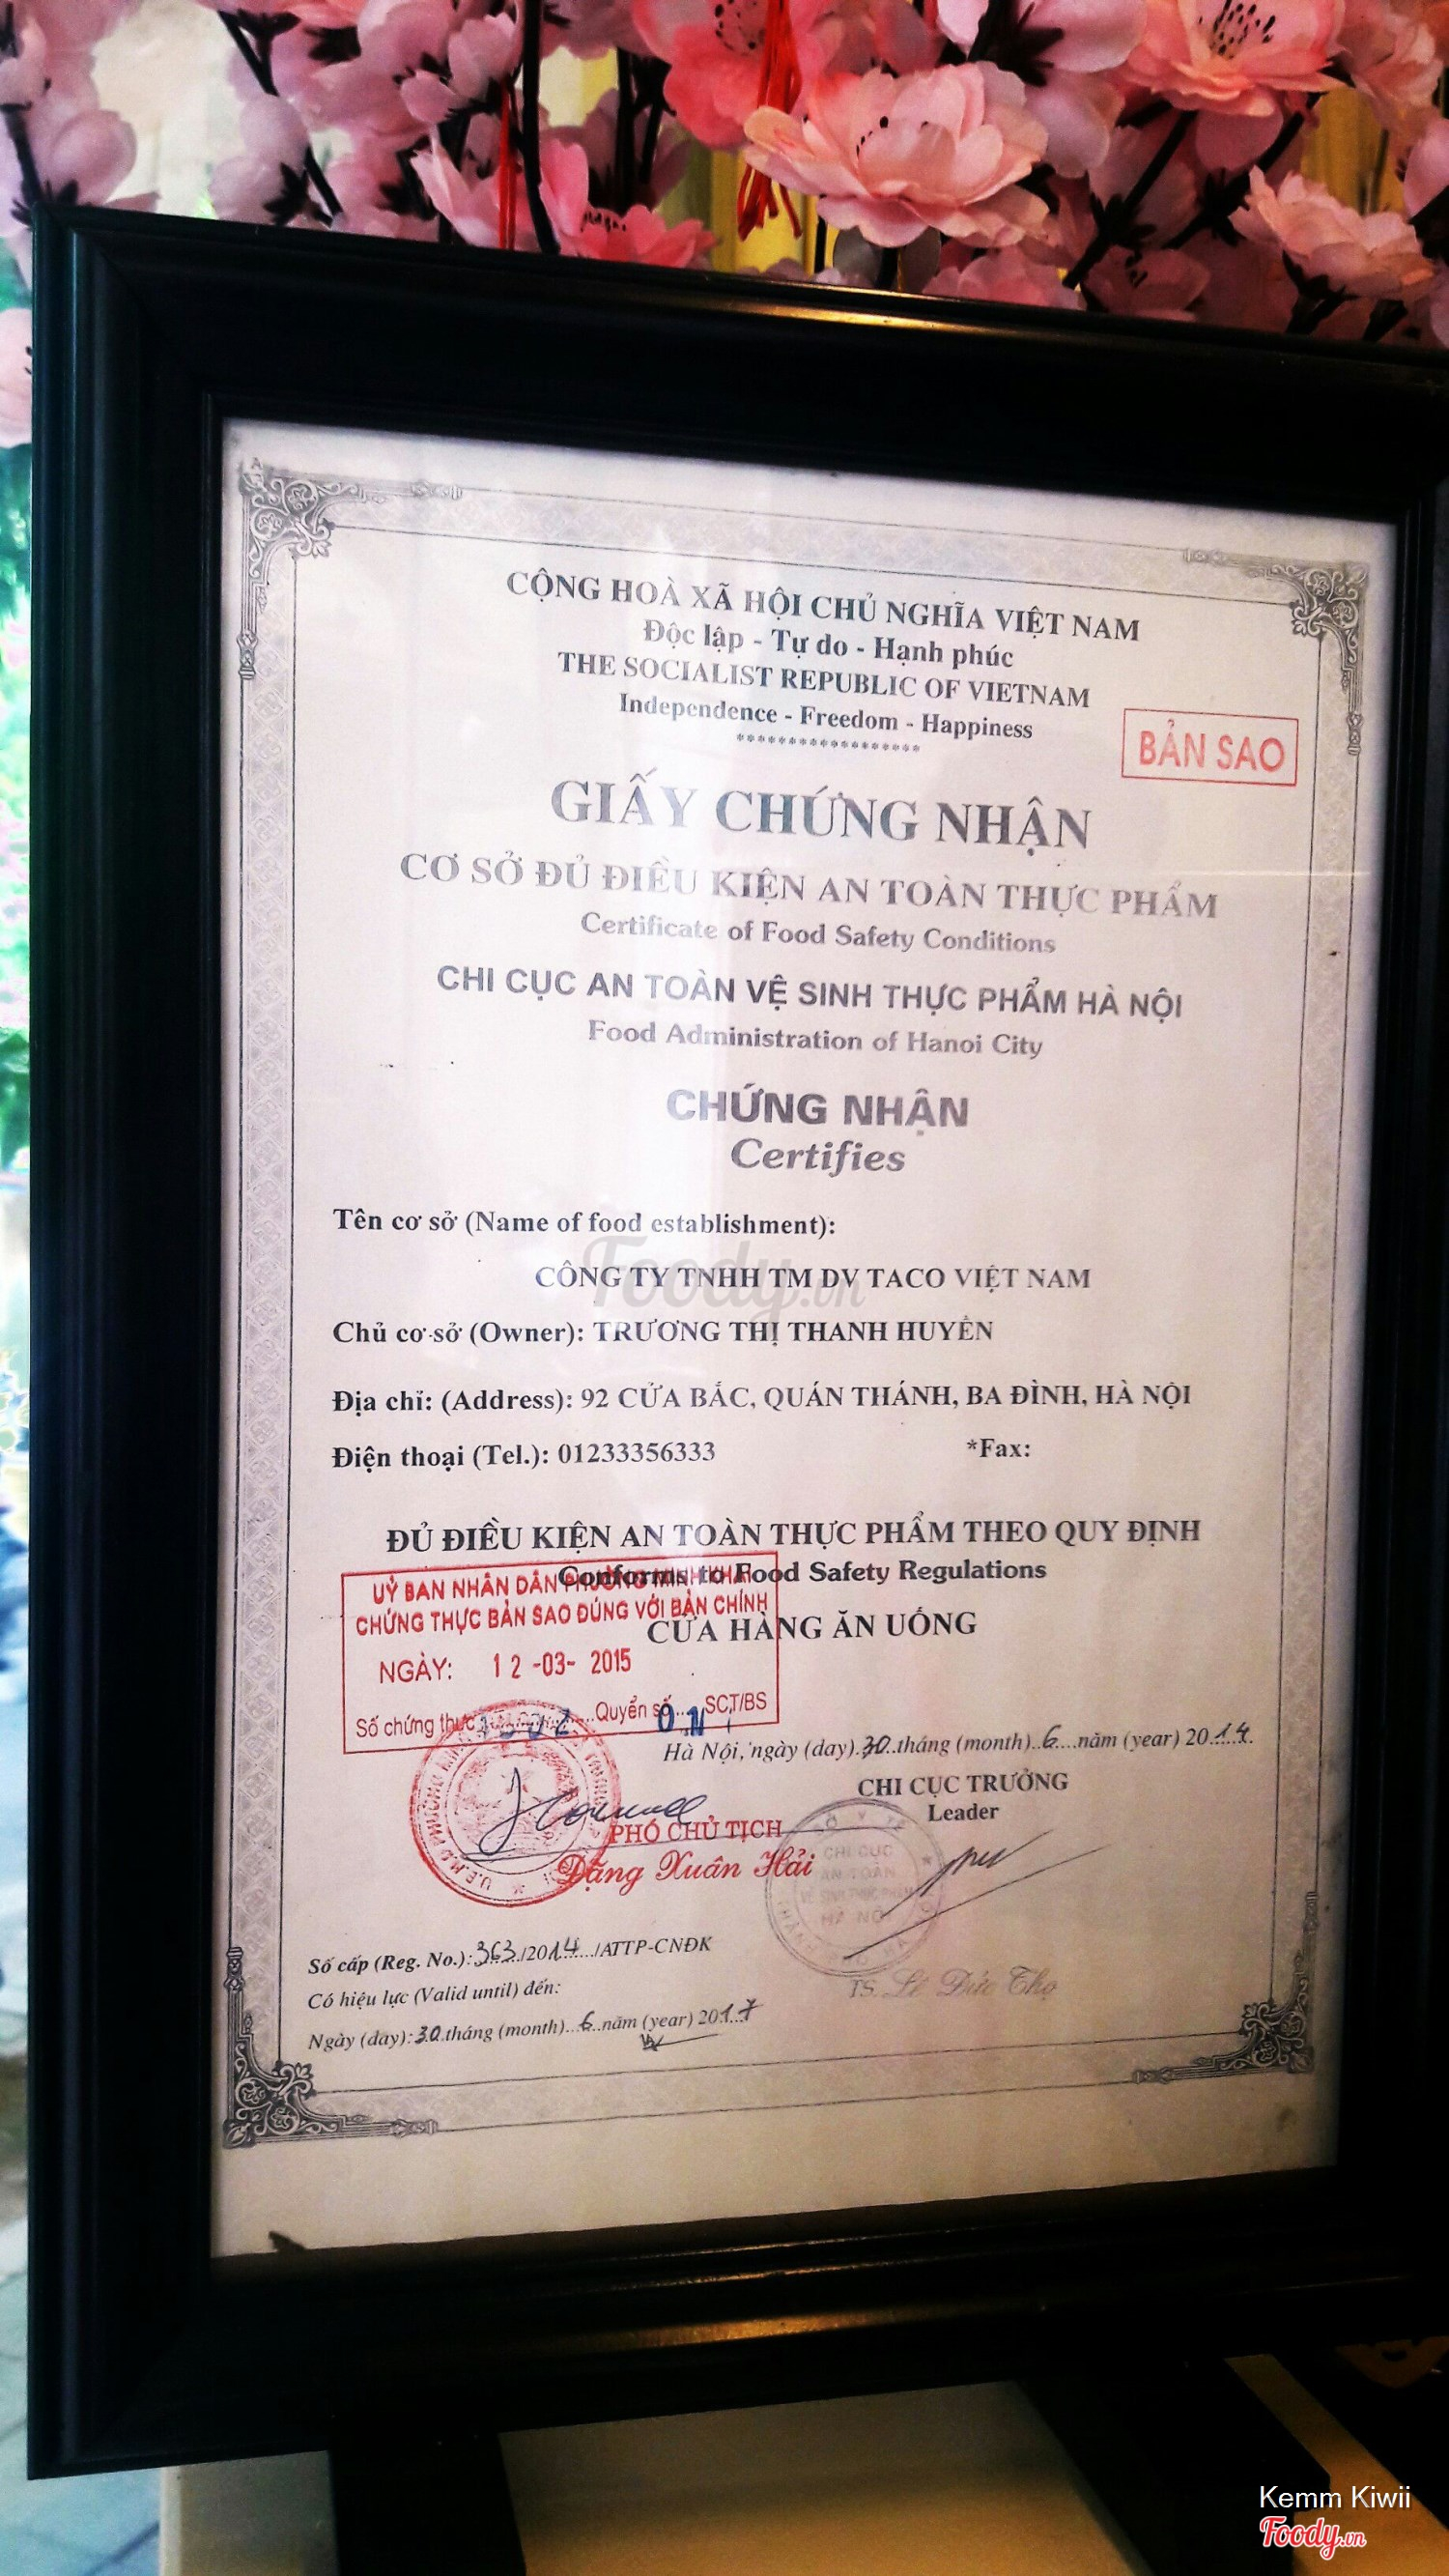 CỘNG HOÀ XÃ HỘI CHỦ NGHĨA VIỆT NAM
Độc lập - Tự do - Hạnh phúc
THE SOCIALIST REPUBLIC OF VIETNAM
Independence - Freedom - Happiness
******************
BẢN SAO
GIẤY CHỨNG NHẬN
CƠ SỞ ĐỦ ĐIỀU KIỆN AN TOÀN THỰC PHẨM
Certificate of Food Safety Conditions
CHI CỤC AN TOÀN VỆ SINH THỰC PHẨM HÀ NỘI
Food Administration of Hanoi City
CHỨNG NHẬN
Certifies
Tên cơ sở (Name of food establishment):
Foody.vn
CÔNG TY TNHH TM DV TACO VIỆT NAM
Chủ cơ sở (Owner): TRƯƠNG THỊ THANH HUYỀN
Địa chỉ: (Address): 92 CỬA BẮC, QUÁN THÁNH, BA ĐÌNH, HÀ NỘI
Điện thoại (Tel.): 01233356333 *Fax:
ĐỦ ĐIỀU KIỆN AN TOÀN THỰC PHẨM THEO QUY ĐỊNH
Conforms to Food Safety Regulations
UỶ BAN NHÂN DÂN PHƯỜNG MINH KHAI
CHỨNG THỰC BẢN SAO ĐÚNG VỚI BẢN CHÍNH
CỬA HÀNG ĂN UỐNG
NGÀY: 12-03-2015
Số chứng thực Quyển số 01 SCT/BS
Hà Nội, ngày (day) 30 tháng (month) 6 năm (year) 2014
CHI CỤC TRƯỞNG
Leader
PHÓ CHỦ TỊCH
Đặng Xuân Hải
CHI CỤC
AN TOÀN
VỆ SINH THỰC PHẨM
HÀ NỘI
Số cấp (Reg. No.): 363/2014/ATTP-CNĐK
TS. Lê Đức Thọ
Có hiệu lực (Valid until) đến:
Ngày (day): 30 tháng (month) 6 năm (year) 2017
Kemm Kiwii
Foody.vn